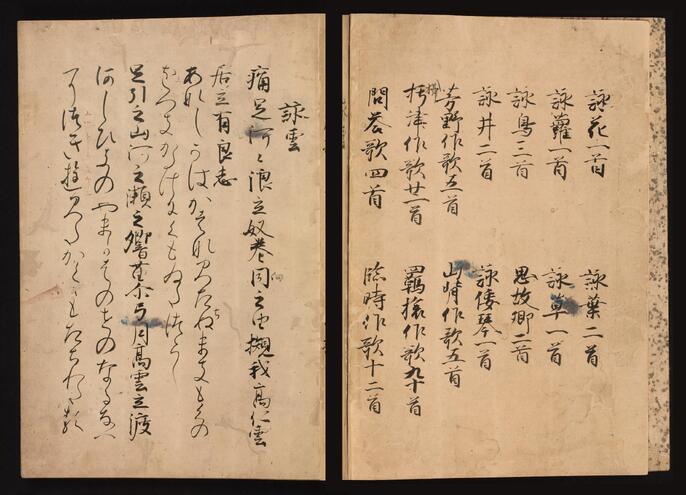 詠花一首　詠葉二首
詠蘿一首　詠草一首
詠鳥三首　思故郷二首
詠井二首　詠倭琴一首
芳野作歌五首　山背作歌五首
摂津作歌廿一首　羇旅作歌九十首
問荅歌四首　臨時作歌十二首
詠雲
痛足河々浪立奴巻目之由槻我高仁雲
居立有良志
あなしかはかはなみたちぬまきもくの
ゆつきかたけにくもゐたつらし
足引之山河之瀬之響苗尓弓月高雲立渡
あしひきのやまかはのせのなるなへ
にゆつきかたけにくもたちわたる